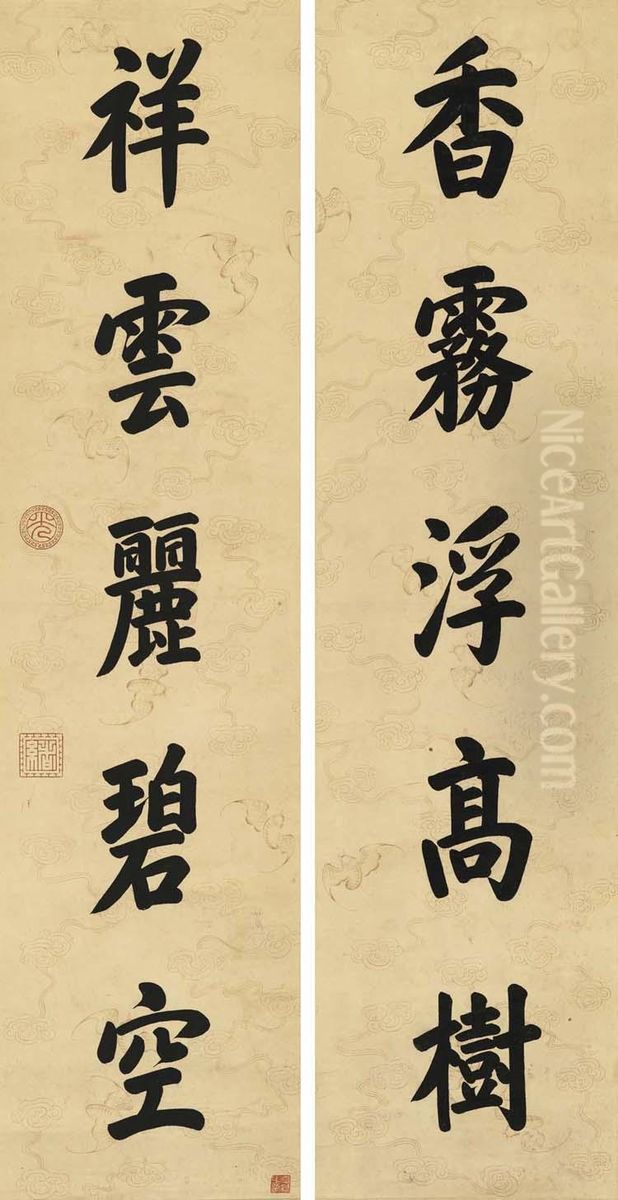 香霧浮高樹
祥雲麗碧空
NiceArtGallery.com